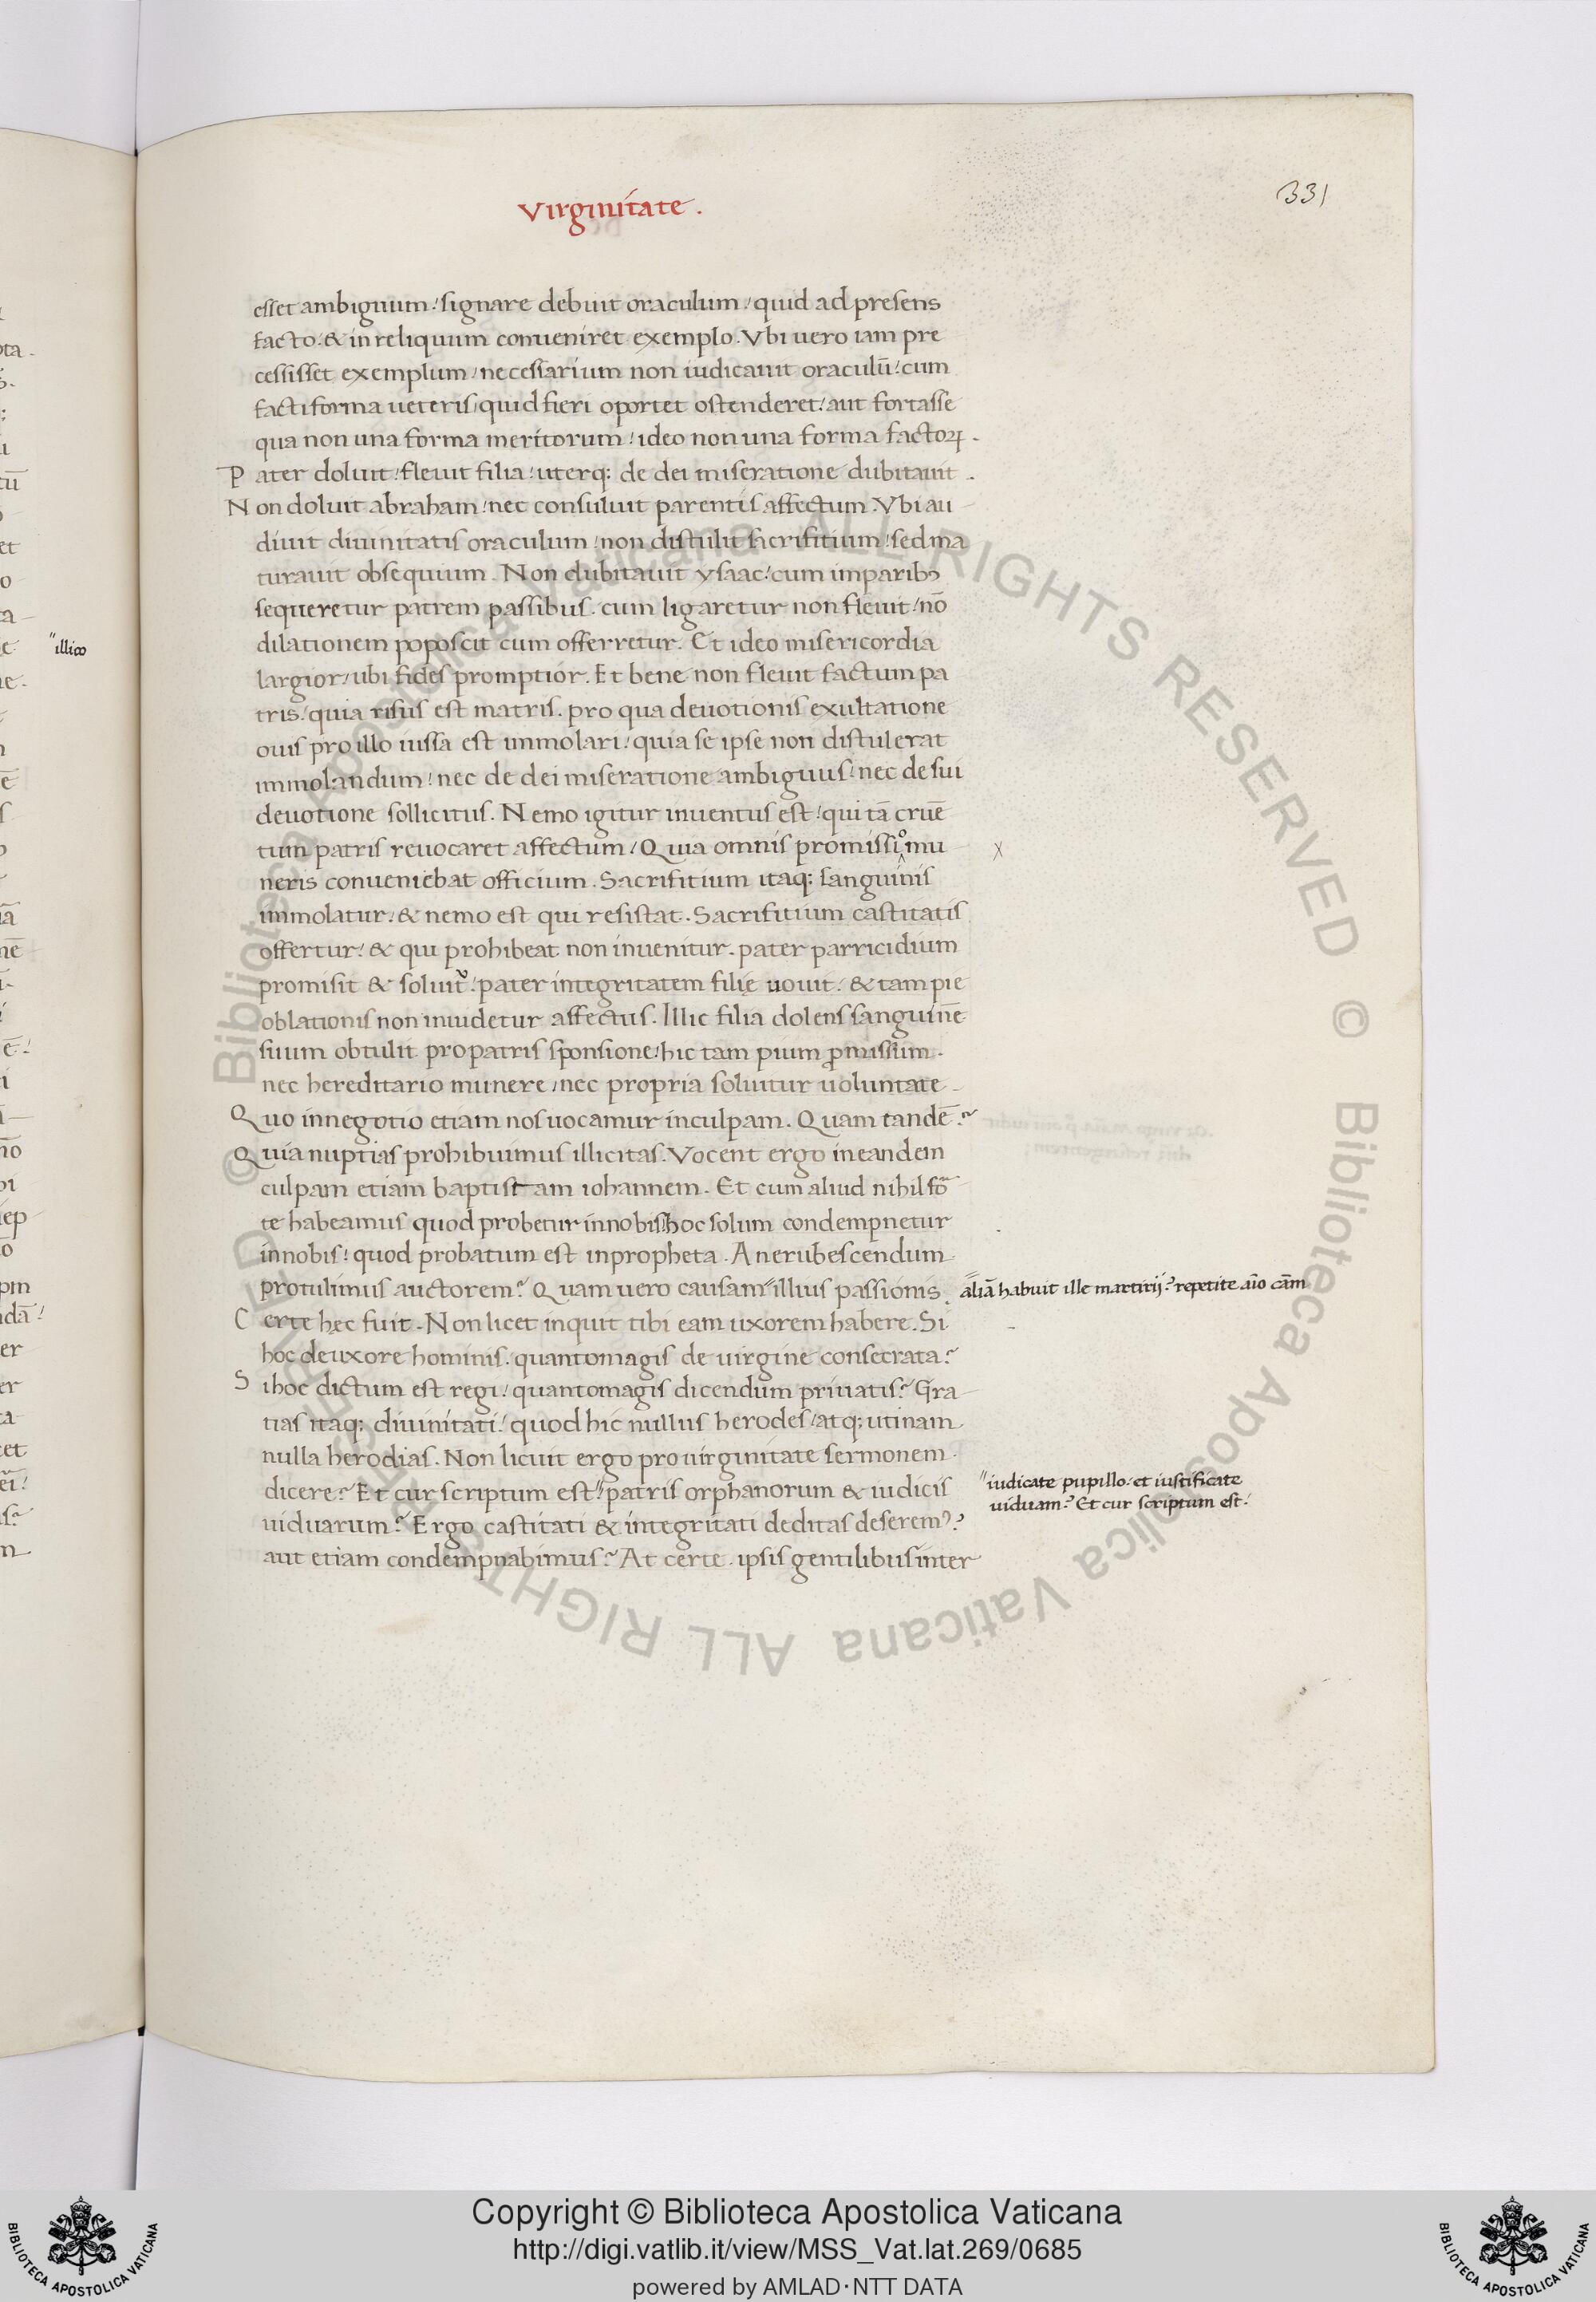 Virginitate.
331
esset ambiguum / signare debuit oraculum / quid ad presens
facto. & in reliquum conueniret exemplo. Vbi uero iam pre
cessisset exemplum / necessarium non iudicauit oraculū / cum
facti forma ueteris / quid fieri oportet ostenderet / aut fortasse
qua non una forma meritorum / ideo non una forma factoꝝ.
Pater doluit / fleuit filia / uterq; de dei miseratione dubitauit.
Non doluit abraham / nec consuluit parentis affectum. Vbi au
diuit diuinitatis oraculum / non distulit sacrifitium / sed ma
turauit obsequium. Non dubitauit ysaac / cum imparibꝫ
sequeretur patrem passibus. cum ligaretur non fleuit / nō
dilationem poposcit cum offerretur. Et ideo misericordia
largior / ubi fides promptior. Et bene non fleuit factum pa
tris / quia risus est matris. pro qua deuotionis exultatione
ouis pro illo iussa est immolari / quia se ipse non distulerat
immolandum / nec de dei miseratione ambiguus / nec de sui
deuotione sollicitus. Nemo igitur inuentus est / qui tā cruē
tum patris reuocaret affectum / Quia omnis promissio mu
neris conueniebat officium. Sacrifitium itaq; sanguinis
immolatur / & nemo est qui resistat. Sacrifitium castitatis
offertur / & qui prohibeat non inuenitur. pater parricidium
promisit & soluit / pater integritatem filię uouit / & tam pie
oblationis non inuidetur affectus. Illic filia dolens sanguinē
suum obtulit pro patris sponsione / hic tam pium ꝓmissum.
nec hereditario munere / nec propria soluitur uoluntate
Quo in negotio etiam nos uocamur in culpam. Quam tandē?
Quia nuptias prohibuimus illicitas. Vocent ergo in eandem
culpam etiam baptistam iohannem. Et cum aliud nihil for
te habeamus quod probetur in nobis / hoc solum condempnetur
in nobis / quod probatum est in propheta. An erubescendum
protulimus auctorem? Quam uero causam // illius passionis. // aliā habuit ille martirij? repetite aīo cām
Certe hęc fuit. Non licet inquit tibi eam uxorem habere. Si
hoc de uxore hominis. quanto magis de uirgine consecrata?
Si hoc dictum est regi / quanto magis dicendum priuatis? Gra
tias itaq; diuinitati / quod hic nullus herodes / atq; utinam
nulla herodias. Non licuit ergo pro uirginitate sermonem
dicere? Et cur scriptum est // patris orphanorum & iudicis
// iudicate pupillo. et iustificate
uiduam? Et cur scriptum est /
uiduarum? Ergo castitati & integritati deditas deseremꝰ?
aut etiam condempnabimus? At certe. ipsis gentilibus inter
// illico
Copyright © Biblioteca Apostolica Vaticana
http://digi.vatlib.it/view/MSS_Vat.lat.269/0685
powered by AMLAD·NTT DATA